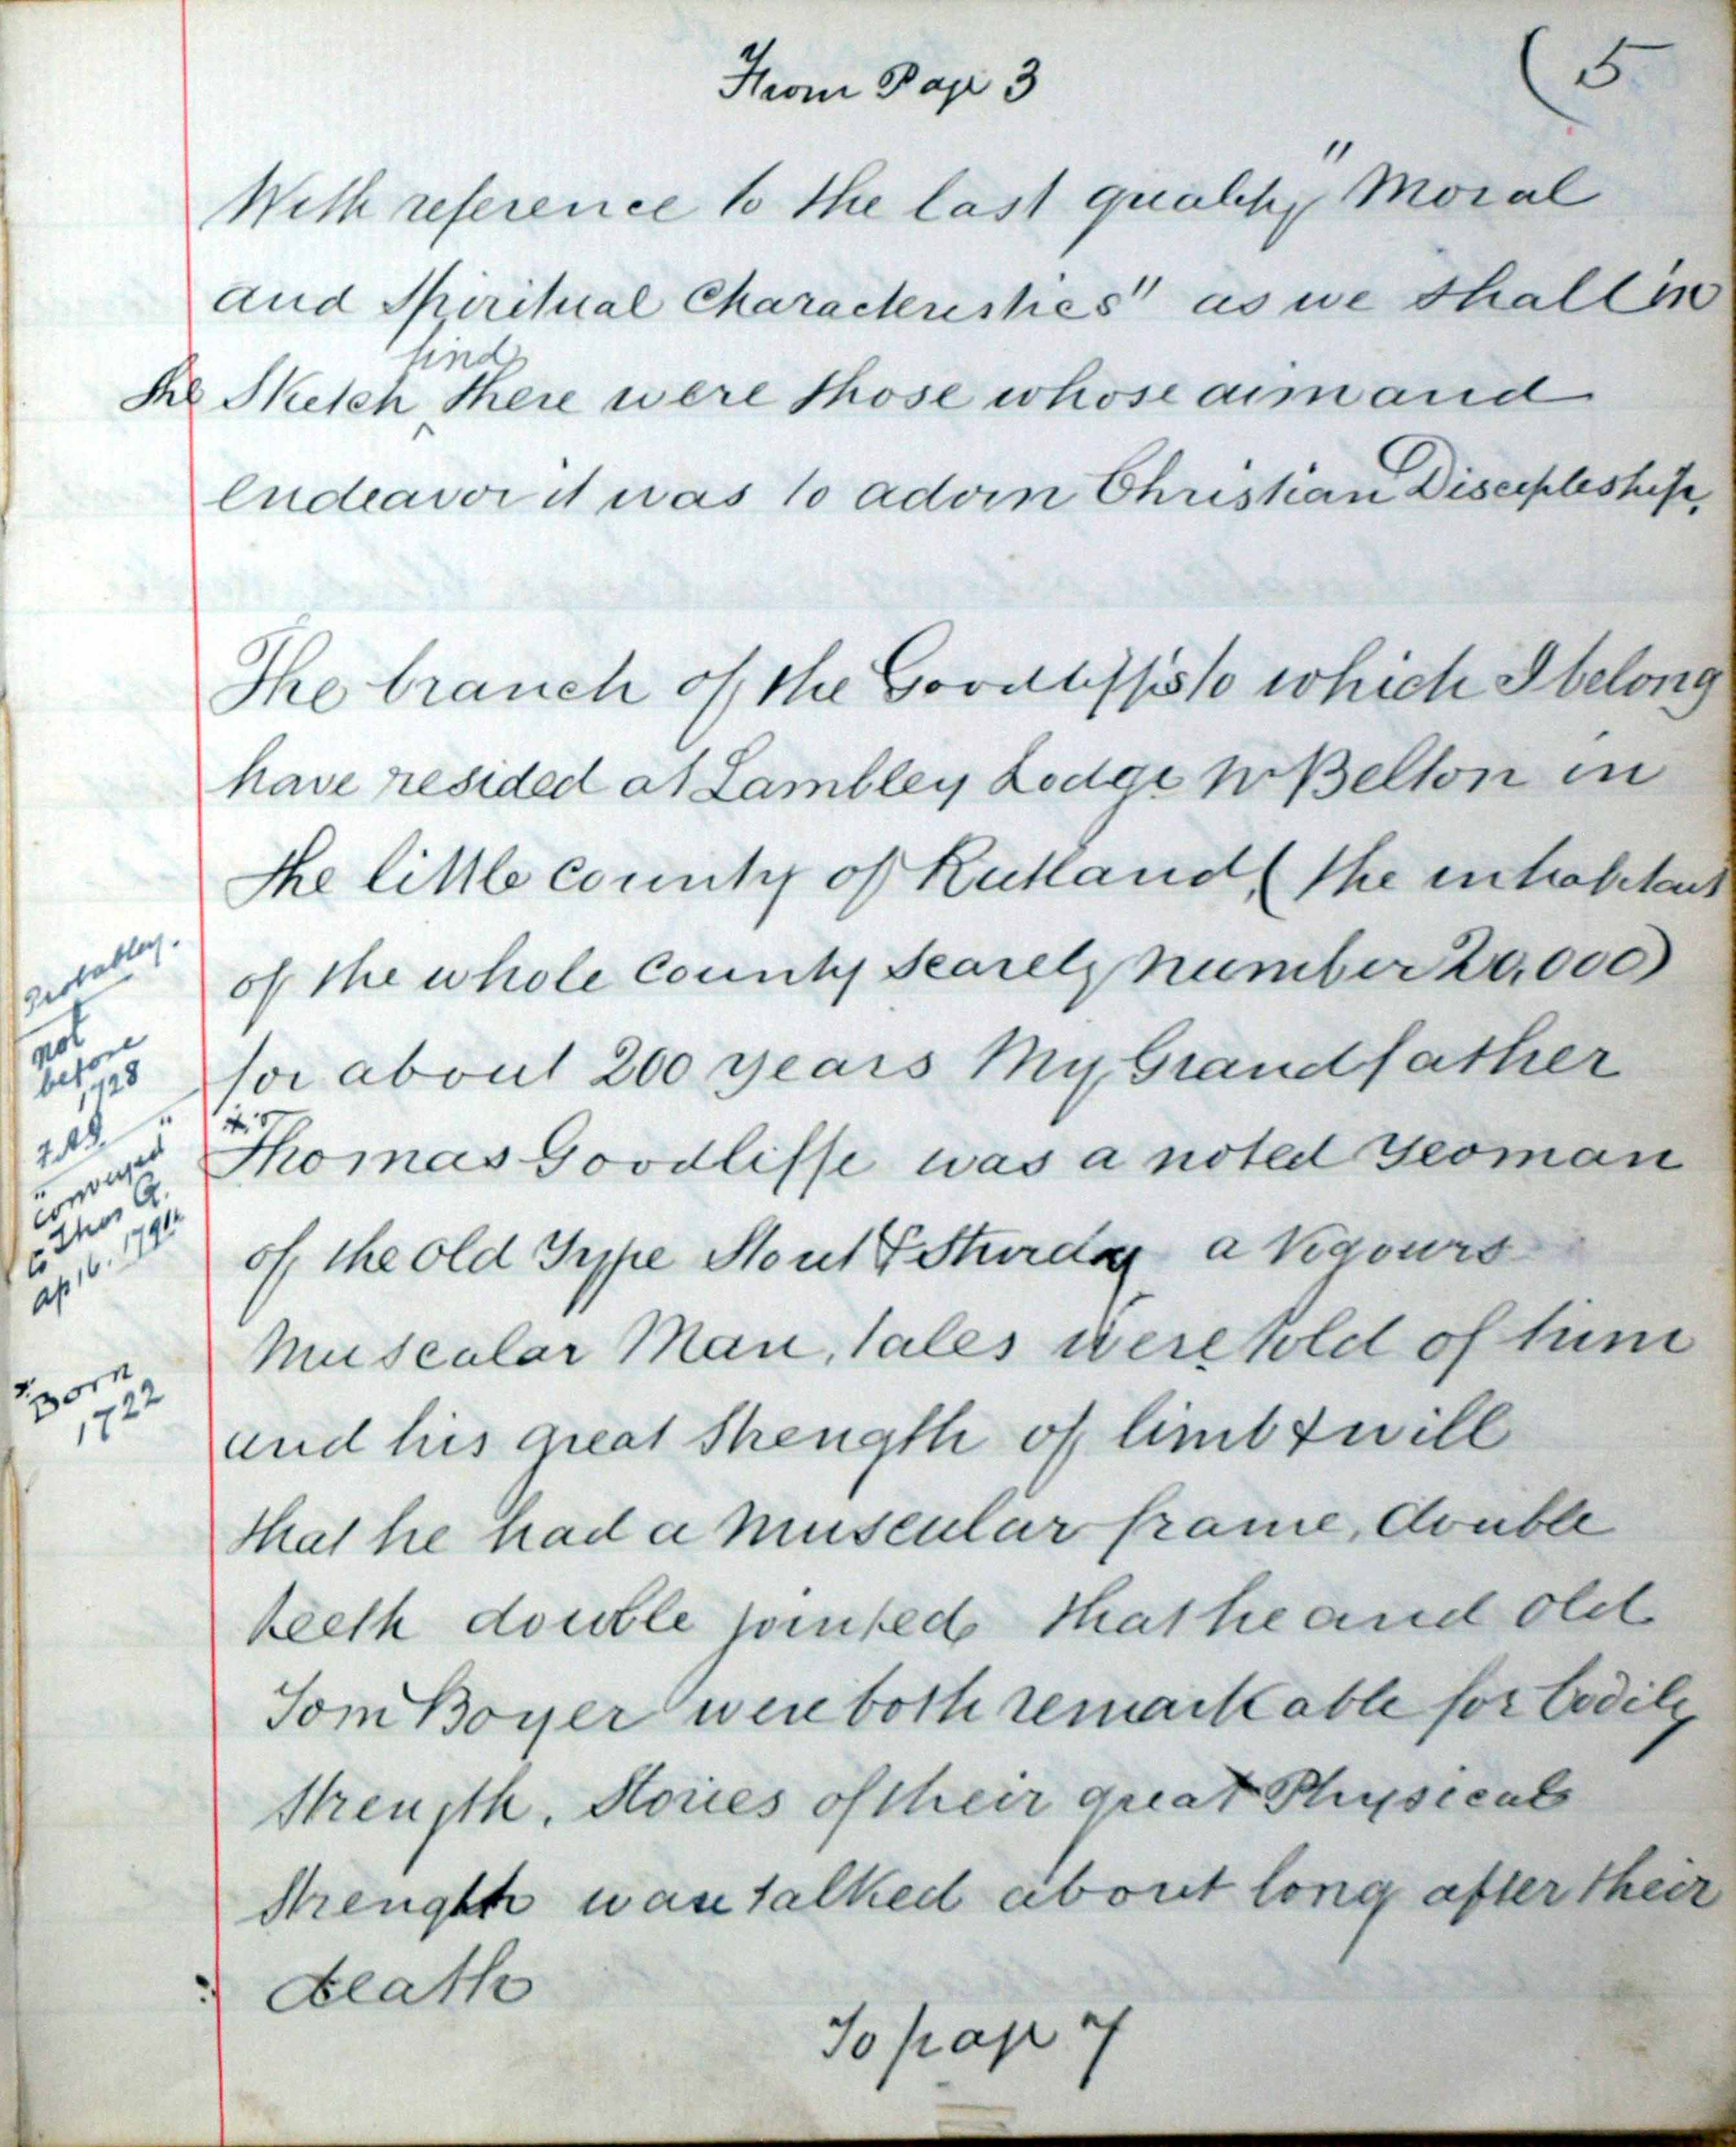 From Page 3
(5
With reference to the last quality, "Moral
and Spiritual Characteristics" as we shall in
find
the Sketch ^ there were those whose aim and
endeavor it was to adorn Christian Discipleship,
The branch of the Goodliffes to which I belong
have resided at Lambley Lodge nr Belton in
the little county of Rutland, (the inhabitants
of the whole county scarely number 20,000)
for about 200 years My Grandfather
Thomas Goodliffe was a noted yeoman
of the old Type Stout & Sturdy a Vigours
Muscular Man, tales were told of him
and his great Strength of limb & will
that he had a Muscular frame, double
teeth double jointed that he and old
Tom Boyer were both remarkable for bodily
strength. Stories of their great Physical
Strength was talked about long after their
death
To page 7
Probably.
not
before
1728
"
" conveyed
to Thos G.
Ap 16. 1791
Born
1722